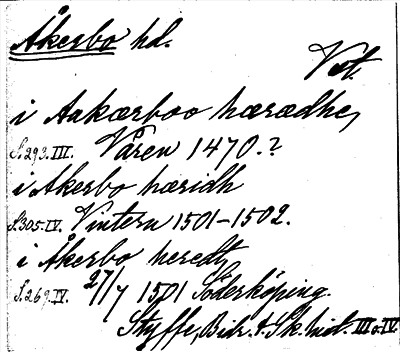 Åkerbo hd.
Vstm.
i Aakærboo hærædhe,
S.293.III. Våren 1470.?
i Åkerbo hæridh
S.305.IV. Vintern 1501-1502.
i Åkerbo heredt,
S.269.IV. 27/7 1501 Söderköping.
Styffe, Bidr. t. Sk. hist. III o. IV.